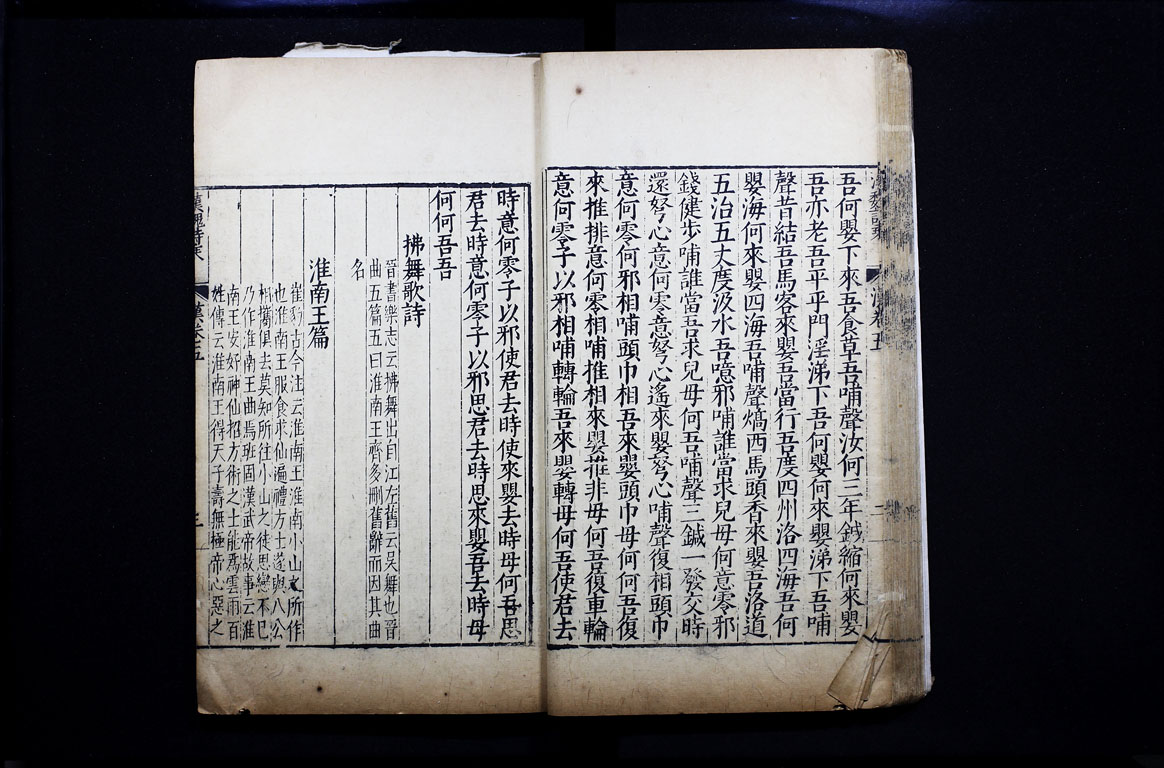 吾何嬰下來吾食草吾哺聲汝何三年鍼縮何來嬰
吾亦老吾平平門淫涕下吾何嬰何來嬰涕下吾哺
聲昔結吾馬客來嬰吾當行吾度四州洛四海吾何
嬰海何來嬰四海吾哺聲熇西馬頭香來嬰吾洛道
五治五丈度汲水吾噫邪哺誰當求兒母何意零邪
錢健步哺誰當吾求兒母何吾哺聲三鍼一發交時
還弩心意何零意弩心遙來嬰弩心哺聲復相頭巾
意何零何邪相哺頭巾相吾來嬰頭巾母何何吾復
來推排意何零相哺推相來嬰推非母何吾復車輪
意何零子以邪相哺轉輪吾來嬰轉母何吾使君去
時意何零子以邪使君去時使來嬰去時母何吾思
君去時意何零子以邪思君去時思來嬰吾去時母
何何吾吾
拂舞歌詩
晉書樂志云拂舞出自江左舊云吳舞也晉
曲五篇五曰淮南王齊多刪舊辭而因其曲
名
淮南王篇
崔豹古今注云淮南王淮南小山之所作
也淮南王服食求仙遍禮方士遂與八公
相攜俱去莫知所往小山之徒思戀不已
乃作淮南王曲焉班固漢武帝故事云淮
南王安好神仙招方術之士能爲雲雨百
姓傳云淮南王得天子壽無極帝心惡之
漢魏詩乘
漢卷五